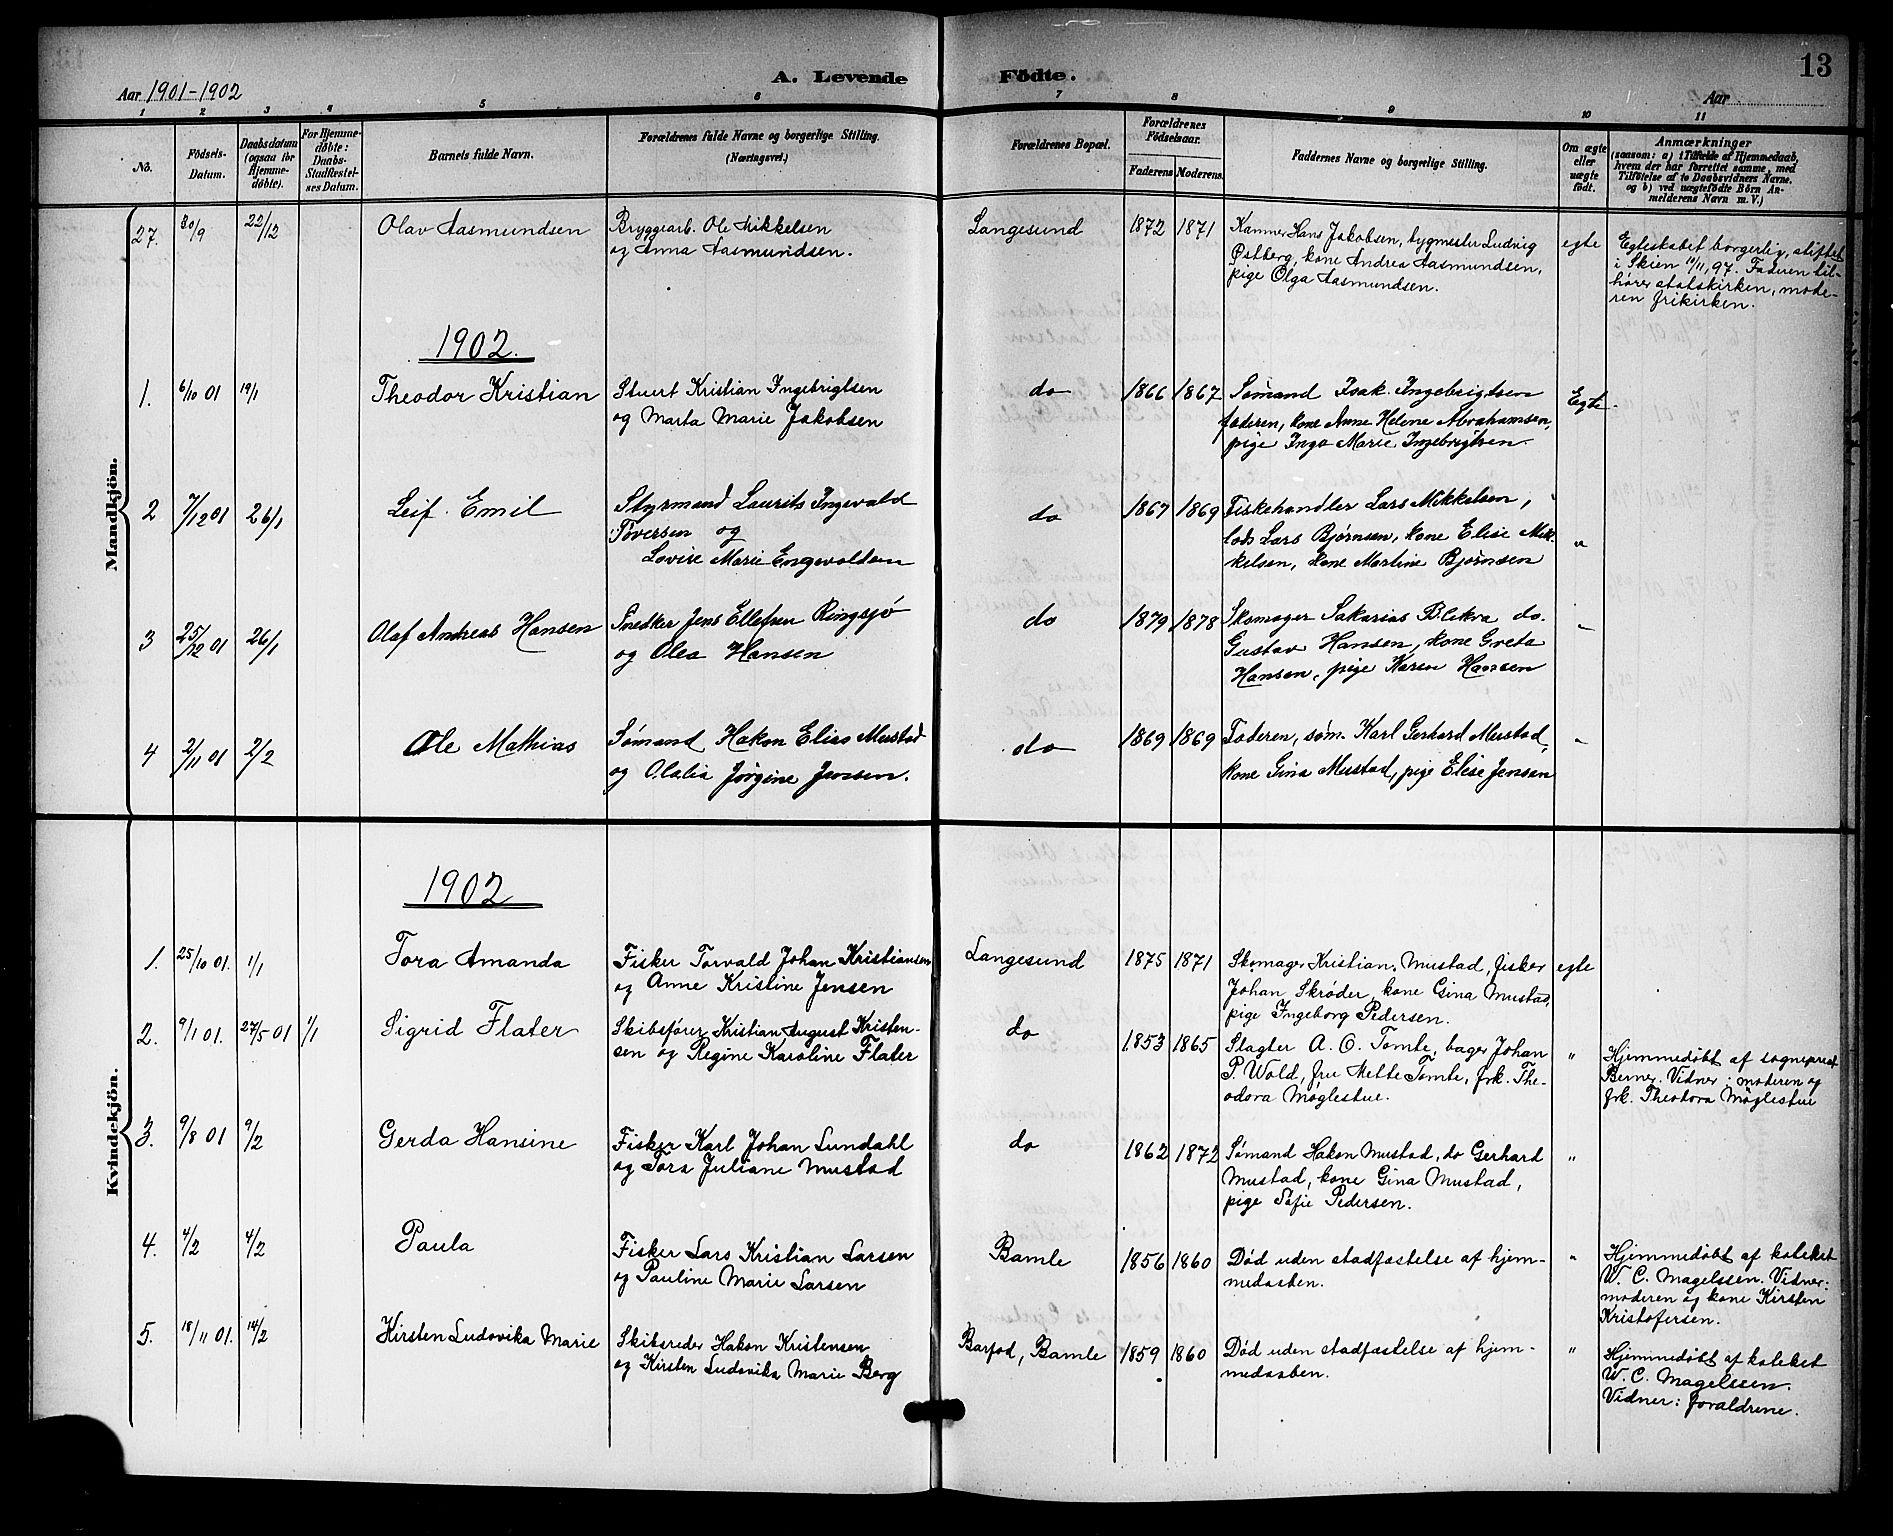 13
A. Levende Födte.
Aar 1901-1902
Aar
1 2 3 4 5 6 7 8 9 10 11
No.
Födsels-
Datum.
Daabsdatum
(ogsaa for
Hjemme-
döbte).
For Hjemme-
döbte:
Daabs-
Stadfæstel-
ses Datum.
Barnets fulde Navn.
Forældrenes fulde Navne og borgerlige Stilling.
(Næringsvei.)
Forældrenes Bopæl.
Forældrenes
Födselsaar.
Faderens Moderens
Faddernes Navne og borgerlige Stilling.
Om ægte
eller
uægte
födt.
Anmærkninger
(saasom: a) i Tilfælde af Hjemmedaab,
hvem der har forrettet samme, med
Tilföielse af to Daabsvidners Navne.
og b) ved uægtefödte Börn An-
melderens Navn m. V.)
Mandkjön.
27. 30/9 22/12 Olav Aasmundsen
Bryggearb. Ole Mikkelsen
og Anna Aasmundsen.
Langesund 1872 1871
Hans Jakobsen, bygmester Ludvig
Østberg, kone Andrea Aasmundsen,
pige Olga Aasmundsen.
egte
Egteskabet borgerlig, stiftet
i Skien 11/11, 97. Faderen til-
hører statskirken, mode-
ren frikirken.
1902.
1. 6/10 01 19/1 Theodor Kristian
Stuert Kristian Ingebrigtsen
og Marta Marie Jakobsen
do 1866 1867
Sømand Isak Ingebrigtsen
faderen, kone Anne Helene Abrahamsen,
pige Inga Marie Ingebrigtsen.
Egte.
2 7/12 01 26/1 Leif Emil
Styrmand Laurits Ingevald
Tøversen og
Lovise Marie Engevoldsen
do 1867 1869
Fiskehandler Lars Mikkelsen,
lods Lars Bjørnsen, kone Elise Mik-
kelsen, kone Martine Bjørnsen
"
3 25/12 01 26/1 Olaf Andreas Hansen
Snedker Jens Ellefsen Ringsjø
og Olea Hansen
do 1879 1878
Skomager Sakarias Blekra do.
Gustav Hansen, kone Greta
Hansen, pige Karen Hansen
"
4 2/11 01 2/2 Ole Mathias
Sømand Hakon Elias Mustad
og Olalia Jørgine Jensen.
do 1869 1869
Faderen, søm. Karl Gerhard Mustad,
kone Gina Mustad, pige Elise Jensen
"
Kvindekjön.
1902
1. 25/10 01. 1/1 Tora Amanda
Fisker Torvald Johan Kristiansen
og Anne Kristine Jensen
Langesund 1875 1871
Skomager Kristian Mustad, fisker
Johan Skrøder, kone Gina Mustad,
pige Ingeborg Pedersen.
egte
2. 9/1 01. 27/5 01 1/1 Sigrid Flater
Skibsfører Kristian August Kristen-
sen og Regine Karoline Flater
do 1853 1865
Slagter A. O. Tomte, bager Johan
P. Wold, fru Mette Tomte, frk. The-
odora Møglestue.
"
Hjemmedøbt af sogneprest
Berner. Vidner: moderen og
frk. Theodora Møglestue
3. 9/8 01 9/2 Gerda Hansine
Fisker Karl Johan Lundahl
og Tora Juliane Mustad
do 1862 1872
Sømand Hakon Mustad, do Gerhard
Mustad, kone Gina Mustad,
pige Sofie Pedersen.
"
4. 4/2 4/2 Paula
Fisker Lars Kristian Larsen
og Pauline Marie Larsen
Bamle 1856 1860
Død uden stadfæstelse af hjem-
medaaben.
"
Hjemmedøbt af kateket
W. C. Magelssen. Vidner:
moderen og kone Kirsten
Kristofersen.
5. 18/11 01. 14/2 Kirsten Ludovika Marie
Skibsreder Hakon Kristensen
og Kirsten Ludovika Marie Berg
Barfod, Bamle 1859 1860
Død uden stadfæstelse af hjem-
medaaben.
"
Hjemmedøbt af kateket
W. C. Magelssen.
Vidner: forældrene.